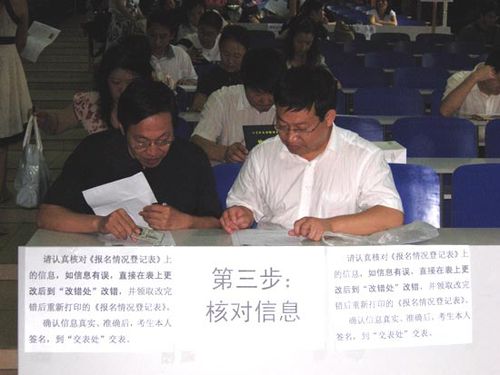 请认真核对《报名情况登记表》上
的信息，如信息有误，直接在表上更
改后到“改错处”改错，并领取改完
错后重新打印的《报名情况登记表》。
确认信息真实、准确后，考生本人
签名，到“交表处”交表。
第三步：
核对信息
请认真核对《报名情况登记表》上
的信息，如信息有误，直接在表上更
改后到“改错处”改错，并领取改完
错后重新打印的《报名情况登记表》。
确认信息真实、准确后，考生本人
签名，到“交表处”交表。